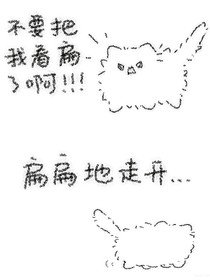 不要把
我看扁
了啊!!!
扁扁地走开...